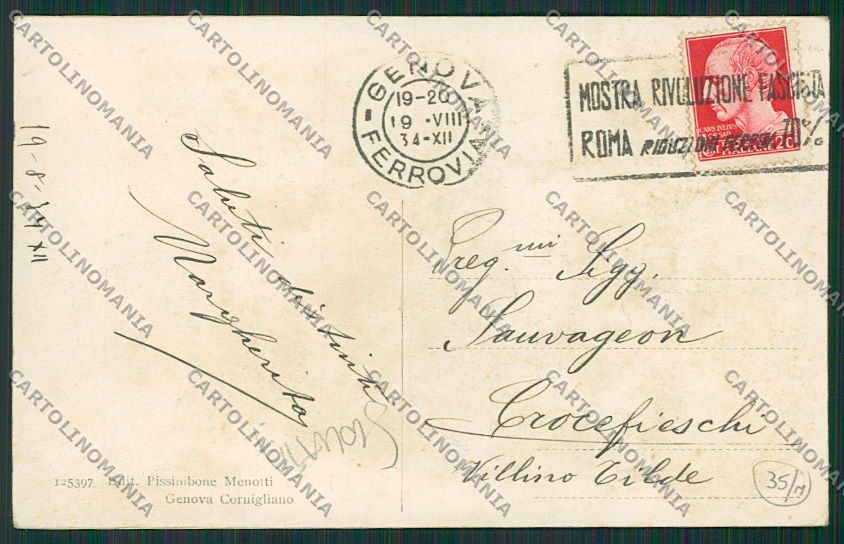 19-8-34 XII
GENOVA
19-20
19 • VIII
34-XII
FERROVIA
MOSTRA RIVOLUZIONE FASCISTA
ROMA RIDUZIONI FERROV. 70%
CAIVS IVLIVS
Saluti distinti
Margherita
Preg.mi Sigg.
Sauvageon
Crocefieschi
Villino Tilde
125397 Edit. Pissimbone Menotti
Genova Cornigliano
35/M
CARTOLINOMANIA